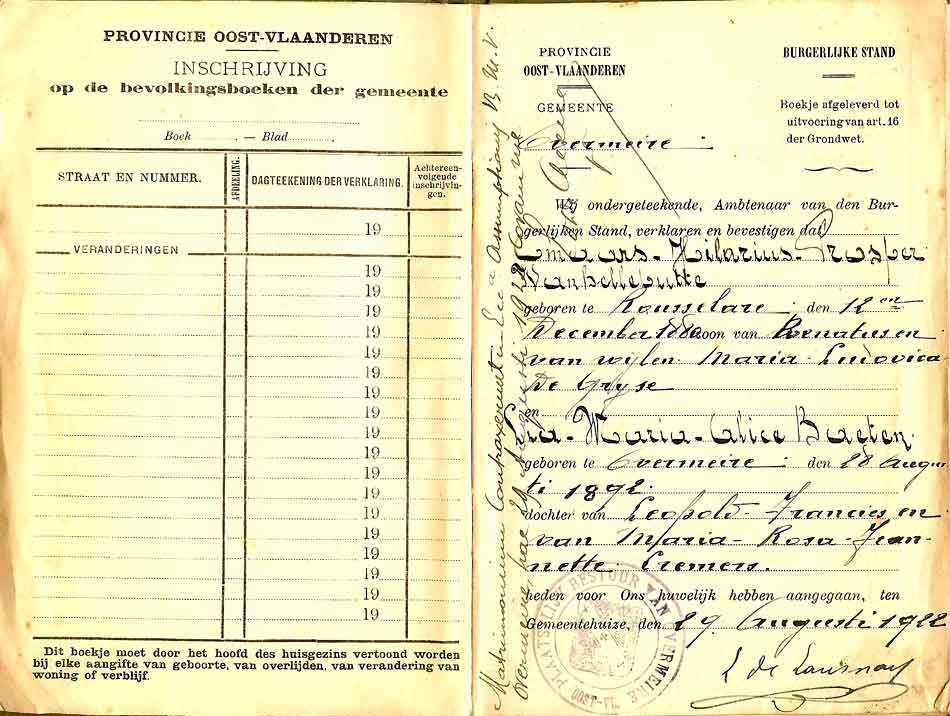 PROVINCIE OOST-VLAANDEREN
INSCHRIJVING
op de bevolkingsboeken der gemeente
Boek — Blad
STRAAT EN NUMMER.
AFDEELING.
DAGTEEKENING DER VERKLARING.
Achtereen-
volgende
inschrijvin-
gen.
19
VERANDERINGEN
19
19
19
19
19
19
19
19
19
19
19
19
19
19
19
19
19
19
Dit boekje moet door het hoofd des huisgezins vertoond worden
bij elke aangifte van geboorte, van overlijden, van verandering van
woning of verblijf.
PROVINCIE
OOST-VLAANDEREN
GEMEENTE
Overmeire
BURGERLIJKE STAND
Boekje afgeleverd tot
uitvoering van art. 16
der Grondwet.
Wij ondergeteekende, Ambtenaar van den Bur-
gerlijken Stand, verklaren en bevestigen dat
Omaars-Hilarius-Prosper
Vanhelleputte
geboren te Rousselare ; den 12en
December 1880 zoon van Renatus en
van wijlen Maria Ludovica
De Gryse
en
Pia-Maria-Alice Baeten
geboren te Overmeire ; den 28 Augus
ti 1892.
dochter van Leopold-Francies en
van Maria-Rosa-Jean-
nette Cremers.
heden voor Ons huwelijk hebben aangegaan, ten
Gemeentehuize, den 29 Augusti 1922
Matrimonium contraxerunt in Assumptionis B. M. V.
Overmeire hac 29 Augusti 1922 coram me
PLAATSELIJK BESTUUR VAN OVERMEIRE
OOST-VL.